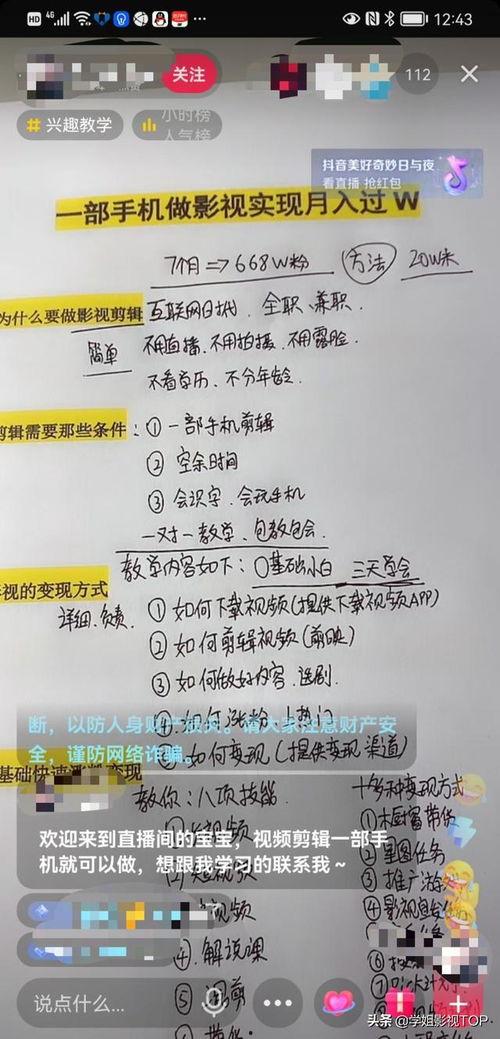 HD 4G 12:43
关注
112
# 兴趣教学
小时榜
人气榜
抖音美好奇妙日与夜
看直播 抢红包
一部手机做影视实现月入过 W
7个月⇒668W粉 方法 20W末
为什么要做影视剪辑 互联网时代、全职、兼职.
简单 不用直播、不用拍摄、不用露脸.
不看学历、不分年龄.
剪辑需要那些条件: ①一部手机剪辑
② 空余时间
③ 会识字、会玩手机
一对一教学、包教包会.
教学内容如下: 0基础小白 三天学会
视的变现方式
详细.负责. ① 如何下载视频(提供下载视频APP)
② 如何剪辑视频(剪映)
③ 如何做好内容、选剧.
④ 如何涨粉、上热门
断，以防人身财产损失。请大家注意财产安
全，谨防网络诈骗。
如何变现(提供变现渠道)
基础快速
变现
教你:八项技能. 十多种变现方式
欢迎来到直播间的宝宝，视频剪辑一部手
机就可以做，想跟我学习的联系我～
②星图任务
③推广
④影视
视频
④. 解说课
⑤
说点什么...
头条 @学姐影视TOP